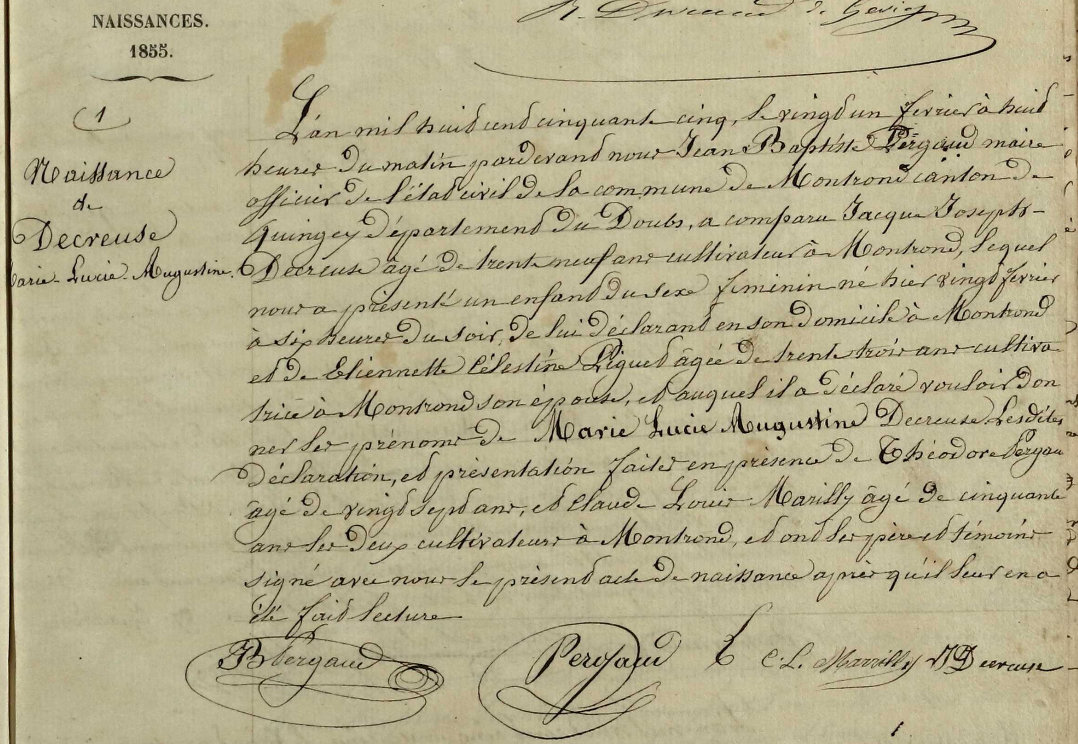 NAISSANCES.
1855.
1
Naissance
de
Decreuse
Marie Lucie Augustine.
L'an mil huit cent cinquante cinq, le vingt un fevrier à huit
heures du matin pardevant nous Jean Baptiste Pergaud maire
officier de l'état civil de la commune de Montrond canton de
Quingey département du Doubs, a comparu Jacque Joseph
Decreuse âgé de trente neuf ans cultivateur à Montrond, lequel
nous a présenté un enfant du sexe féminin né hier vingt fevrier
à six heures du soir, de lui déclarant en son domicile à Montrond
et de Etiennette Célestine Piguet âgée de trente trois ans cultiva
trice à Montrond son épouse, et auquel il a déclaré vouloir don
ner les prénoms de Marie Lucie Augustine Decreuse Lesdites
déclaration, et présentation faites en présence de Théodore Pergau
âgé de vingt sept ans, et Claude Louis Marilly âgé de cinquante
ans les deux cultivateurs à Montrond, et ont les père et témoins
signé avec nous le présent acte de naissance après qu'il leur en a
été fait lecture
JB Pergaud Pergaud C. L. Marilly JJ Decreuse